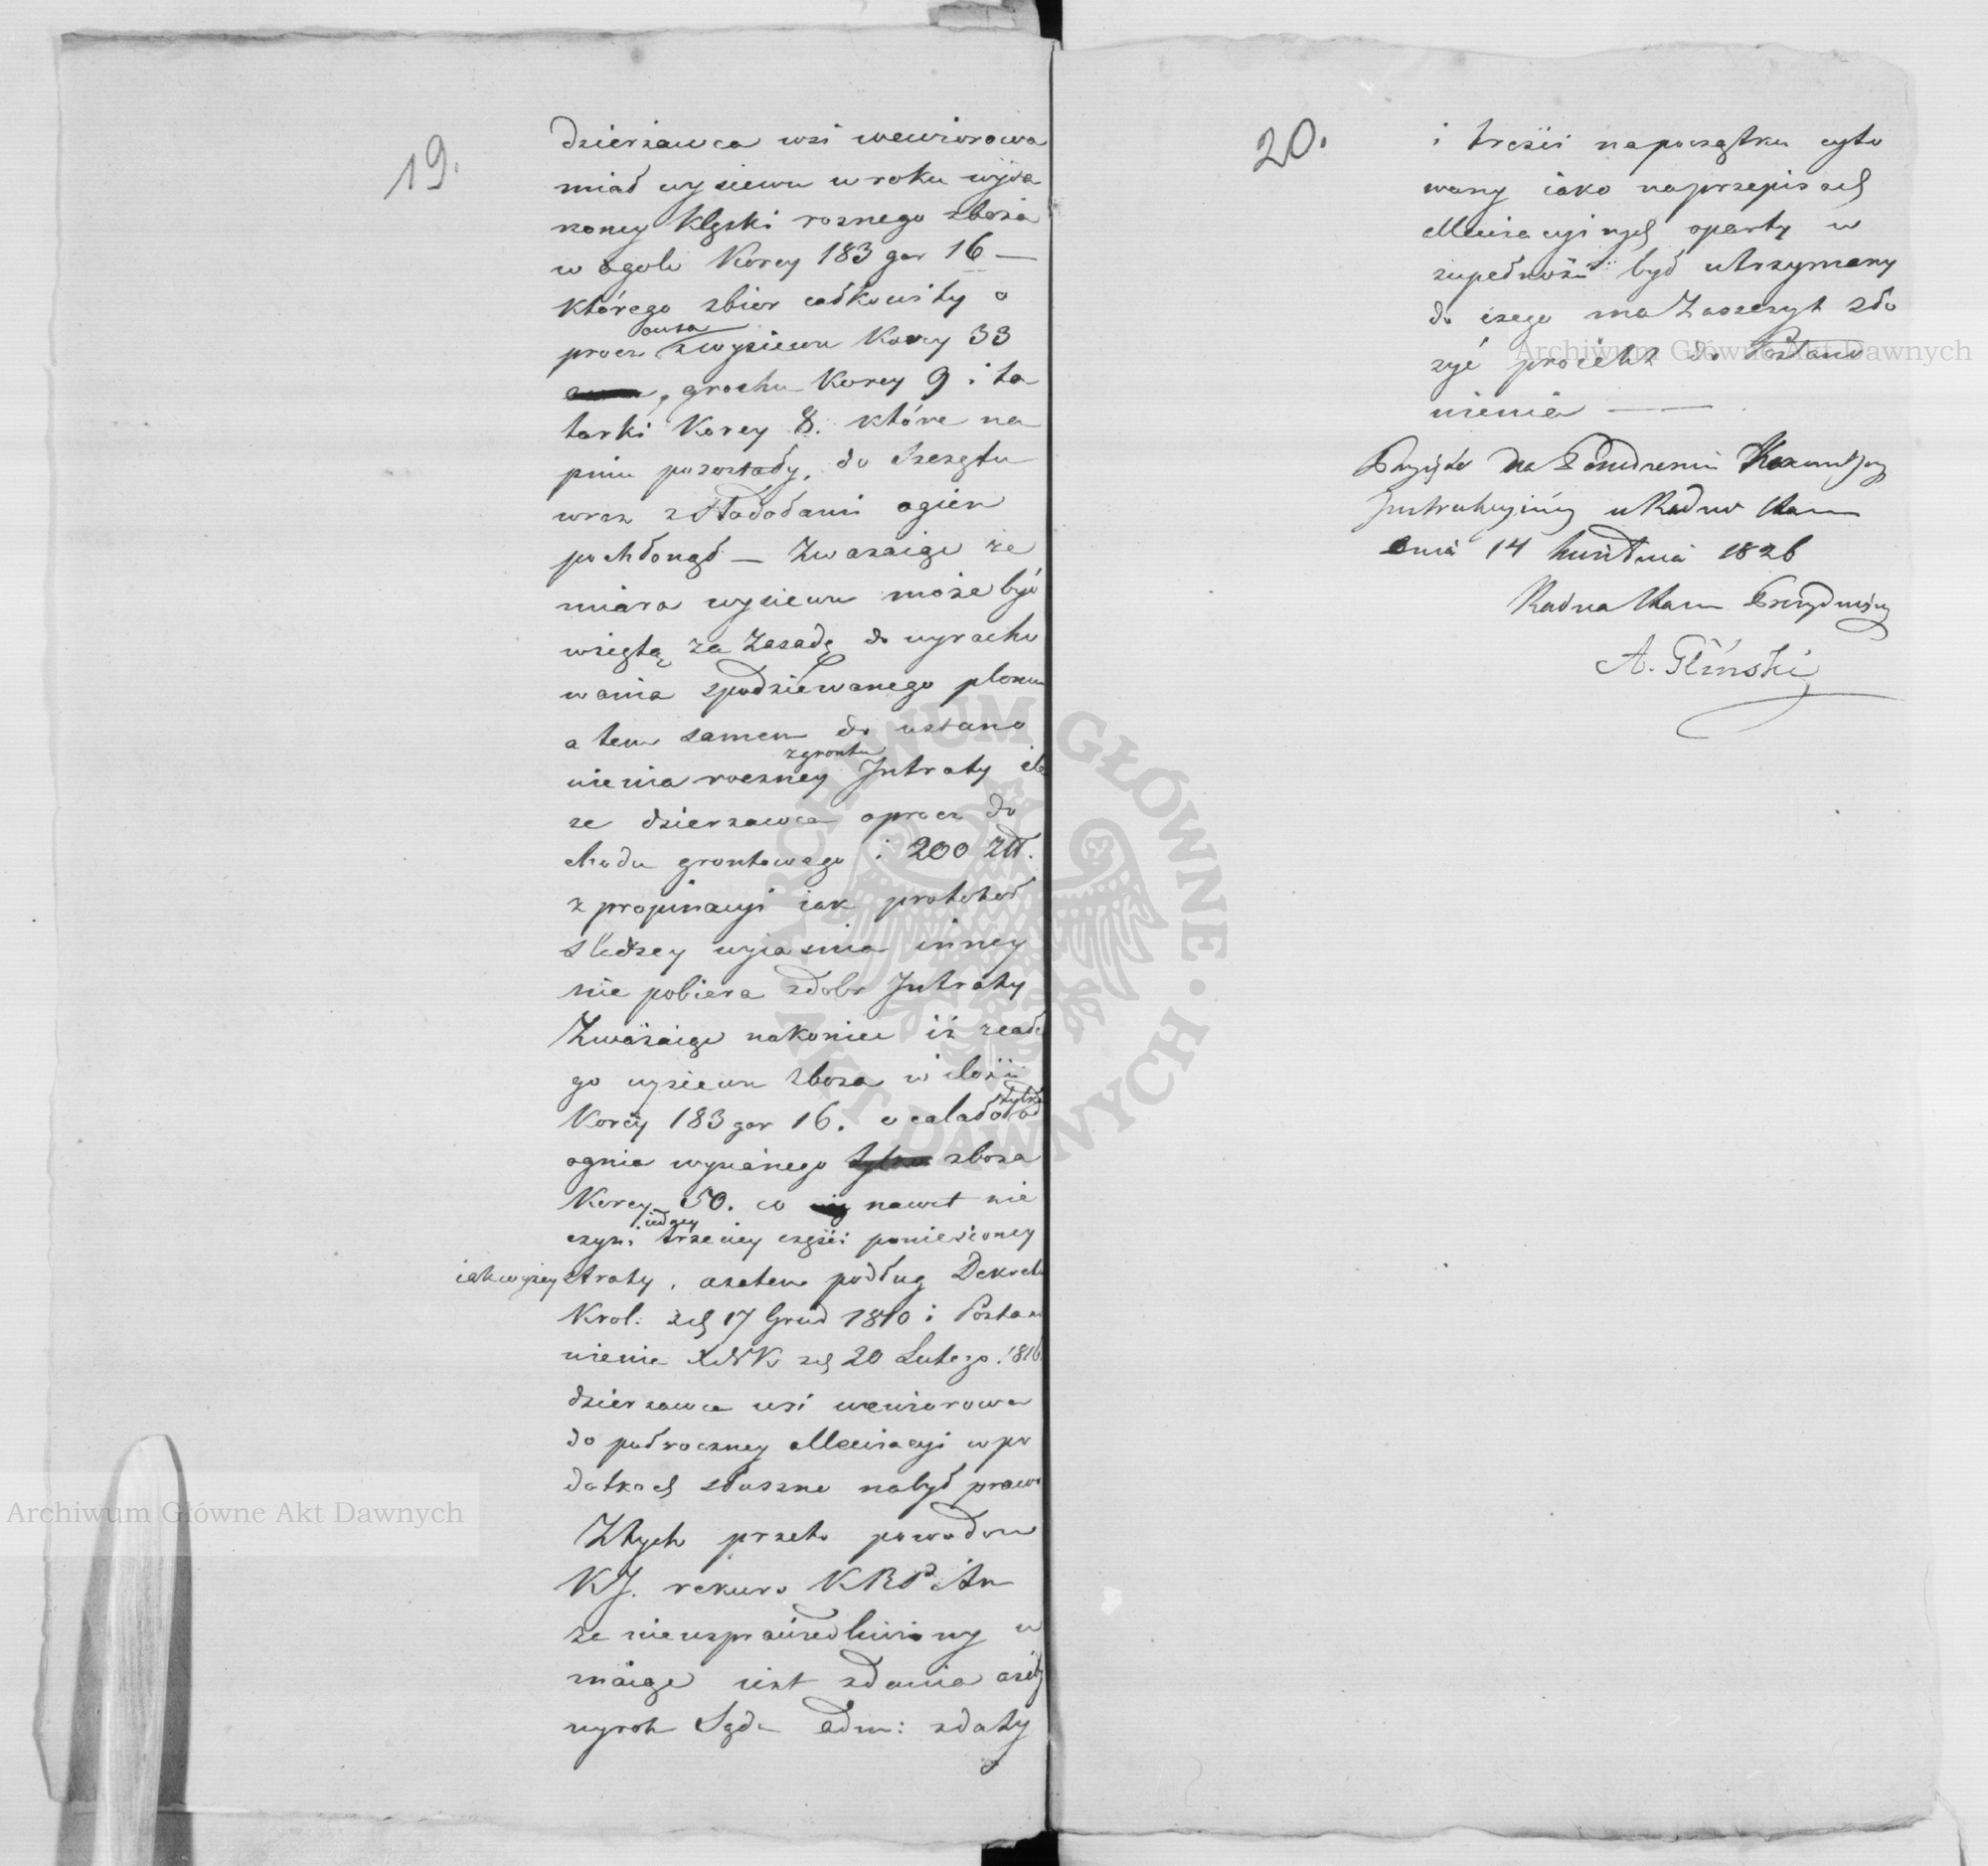 19.
Dzierzawca wsi wewiorowa
miał wysiewu w roku wyda
rzoney klęski roznego zboża
w ogole Korcy 183 gar 16 —
którego zbior całkowity o
procz owsa zwysiewu Korcy 33
, grochu Korcy 9 i ta
tarki Korcy 8. które na
pniu pozostały, do szczętu
wraz z stodołami ogien
pochłonął — Zwazaiąc ze
miara wysiewu może być
wziętą za zasadę do wyracho
wania spodziewanego plonu
a tem samem do ustano
wienia roczney zgrontu Intraty
ze dzierzawca oprocz do
chodu grontowego i 200 Złł.
z propinacyi iak protokoł
sledczy wyiasnia inney
nie pobiera zdobr Intraty
Zwázaiąc nakoniec iż zcałe
go wysiewu zboza w ilości
Korcy 183 gar 16. ocalało tylko od
ognia wysianego tylko zboza
Korcy 50. co nawet nie
czyni iedney trzeciey części poniesioney
iakwyzey straty, azatem podług Dekretu
Krol: z d 17 Grud 1810 i Postano
wienia XNK z d 20 Lutego 1816
dzierzawca wsi wewiorowa
do pułroczney allewiacyi w po
datkach słuszne nabył prawo
Ztych przeto powodow
KJ. rekurs KRPiSk
za nieusprawiedliwiony u
maiąc iest zdania azeby
wyrok Sądu adm: z daty
20.
i treści napoczątku cyto
wany iako naprzepisach
allewiacyinych oparty w
zupełności był utrzymany
do czego ma Zaszczyt zło
żyć proiekt do Postano
wienia —
Przyięto na Posiedzeniu Kommissyi
Instrukcyiney w Radzie Stanu
dnia 14 kwietnia 1826
Radca Stanu Prezyduiący
A. Gliński
Archiwum Główne Akt Dawnych
Archiwum Główne Akt Dawnych
ARCHIWUM GŁÓWNE · AKT DAWNYCH ·